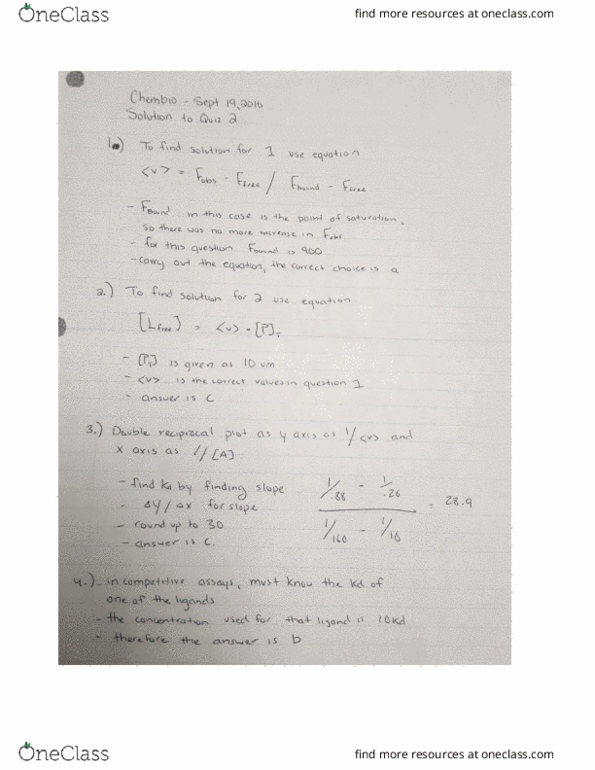 OneClass
find more resources at oneclass.com
Chembio - Sept 19, 2016
Solution to Quiz 2
1.) To find solution for 1 use equation
<v> = Fobs - Ffree / Fbound - Ffree
- FBound in this case is the point of saturation,
so there was no more increase in Fobs
- for this question Fbound is 900
- carry out the equation, the correct choice is a
2.) To find solution for 2 use equation
[Lfree] = <v> • [P]T
- [PT] is given as 10 um
- <v> is the correct values in question 1
- answer is C
3.) Double reciprocal plot as y axis as 1/<v> and
x axis as 1/[A]
- find Kd by finding slope
- ΔY/Δx for slope
- round up to 30
- answer is C.
1/.88 - 1/.26
= 28.9
1/160 - 1/10
4.) - in competitive assays, must know the Kd of
one of the ligands
- the concentration used for that ligand is 10Kd
- therefore the answer is b
OneClass
find more resources at oneclass.com